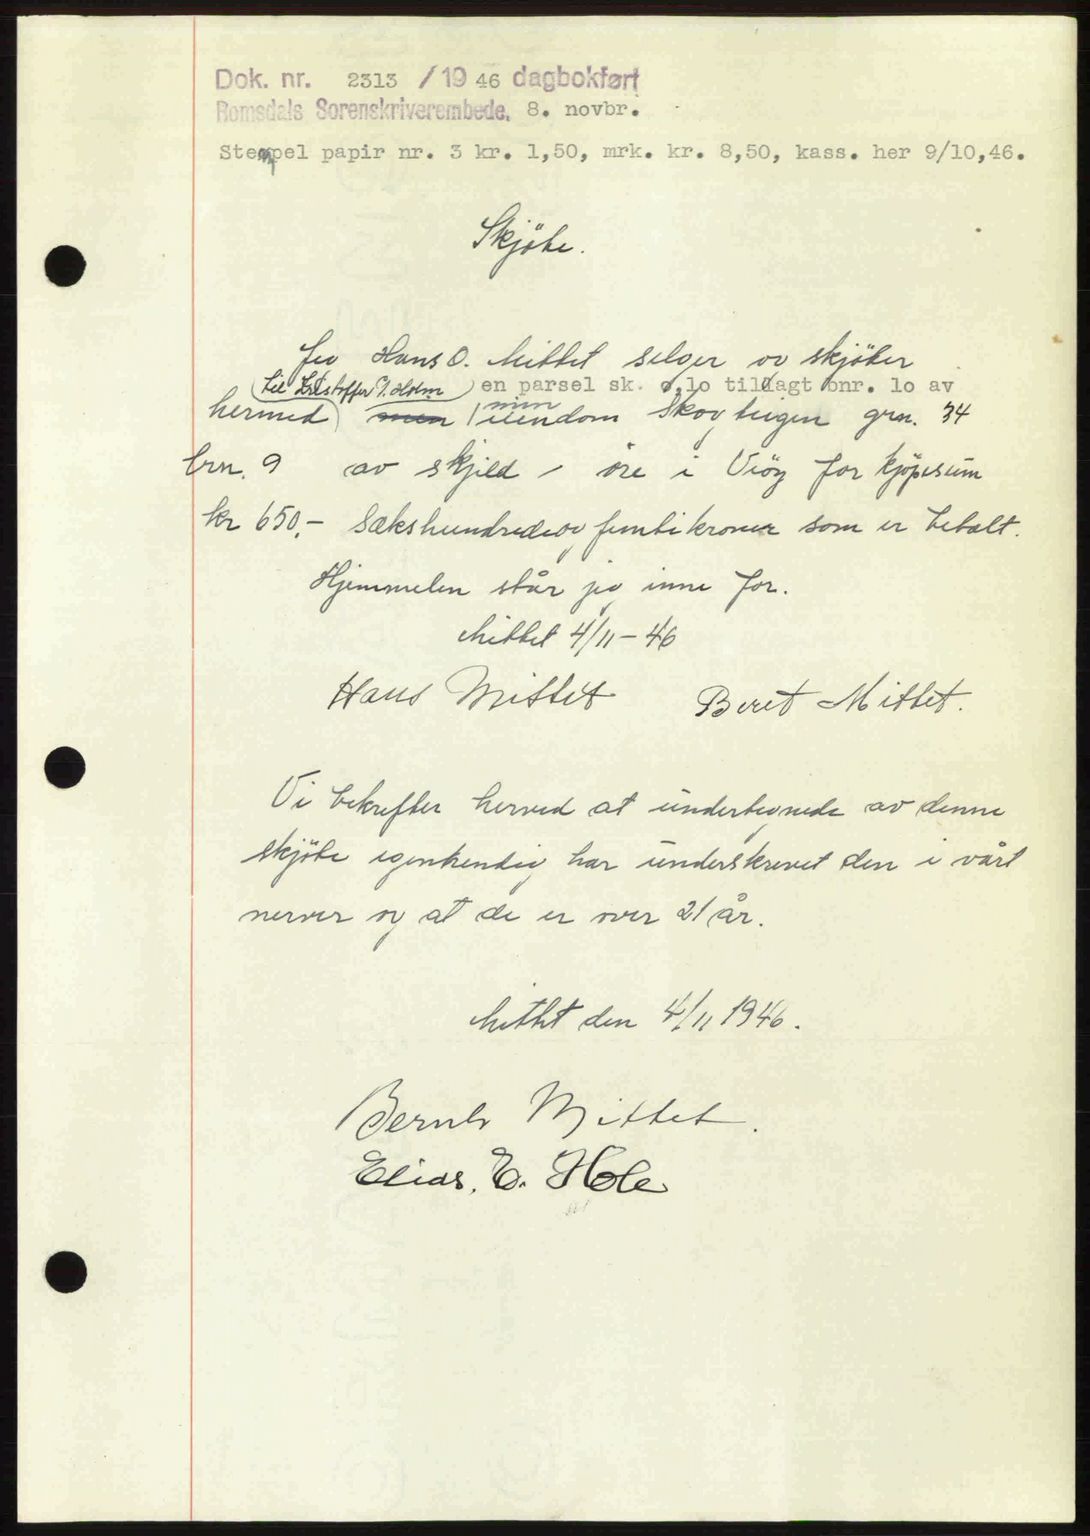 Dok. nr. 2313 / 19 46 dagbokført
Romsdals Sorenskriverembede, 8. novbr.
Stempel papir nr. 3 kr. 1,50, mrk. kr. 8,50, kass. her 9/10,46.
Skjöte.
Jeg Hans O. Mittet selger og skjöter
(til Kristoffer P. Holm) en parsel sk. 0,10 tillagt bnr. 10 av
hermed men / min eiendom Skogteigen grn. 34
brn. 9 av skjeld - öre i Viöy for kjöpesum
kr 650,- Sekshundredeog femtikroner som er betalt.
Hjemmelen står jeg inne for.
Mittet 4/11-46
Hans Mittet Beret Mittet.
Vi bekrefter herved at undertegnede av denne
skjöte egenhendig har underskrevet den i vårt
nerver og at de er over 21 år.
Mittet den 4/11 1946.
Bernh Mittet.
Elias. E. Hole